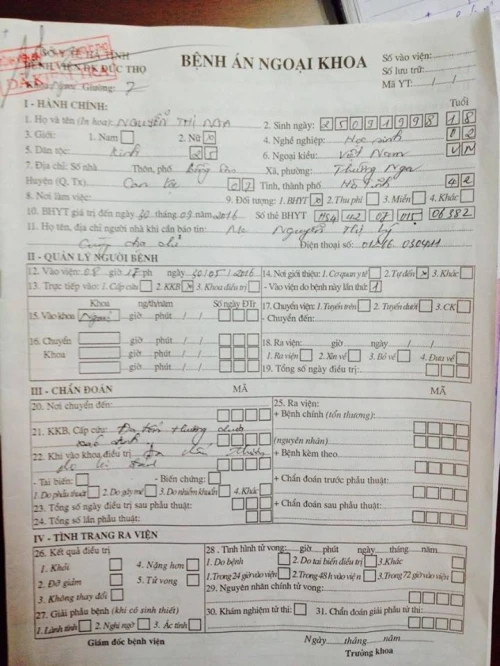 BỆNH VIỆN ĐK ĐỨC THỌ
BỆNH ÁN NGOẠI KHOA
Số vào viện:
Số lưu trữ:
Mã YT: / /
Giường: 7
I - HÀNH CHÍNH:
Tuổi
1. Họ và tên (In hoa): NGUYỄN THỊ NGA 2. Sinh ngày: 25 09 1998 18
3. Giới: 1. Nam 2. Nữ 4. Nghề nghiệp: Học sinh
5. Dân tộc: Kinh 25 6. Ngoại kiều: Việt Nam VN
7. Địa chỉ: Số nhà Thôn, phố Xã, phường: Thường Nga
Huyện (Q. Tx) Can Lộc 07 Tỉnh, thành phố Hà Tĩnh 42
8. Nơi làm việc: 9. Đối tượng: 1. BHYT 2. Thu phí 3. Miễn 4. Khác
10. BHYT giá trị đến ngày 30 tháng 09 năm 2016 Số thẻ BHYT 42 07 015 06382
11. Họ tên, địa chỉ người nhà khi cần báo tin: Mẹ Nguyễn Thị Lý
Cùng địa chỉ Điện thoại số:
II - QUẢN LÝ NGƯỜI BỆNH
12. Vào viện: 08 giờ ph ngày 30/05/2016 14. Nơi giới thiệu: 1. Cơ quan y tế 2. Tự đến 3. Khác
13. Trực tiếp vào: 1. Cấp cứu 2. KKB 3. Khoa điều trị - Vào viện do bệnh này lần thứ 1
Khoa ng/th/năm Số ngày ĐTr 17. Chuyển viện: 1. Tuyến trên 2. Tuyến dưới 3. CK
15. Vào khoa Ngoại giờ phút / / - Chuyển đến:
16. Chuyển Khoa giờ phút / / 18. Ra viện: giờ ngày / /
giờ phút / / 1. Ra viện 2. Xin về 3. Bỏ về 4. Đưa về
giờ phút / / 19. Tổng số ngày điều trị:
III - CHẨN ĐOÁN
MÃ MÃ
20. Nơi chuyển đến: 25. Ra viện:
+ Bệnh chính (tổn thương):
21. KKB, Cấp cứu: Đa thương
(nguyên nhân)
22. Khi vào khoa điều trị Đa thương + Bệnh kèm theo
do bị đánh
- Tai biến: - Biến chứng: + Chẩn đoán trước phẫu thuật:
1. Do phẫu thuật 2. Do gây mê 3. Do nhiễm khuẩn 4. Khác
23. Tổng số ngày điều trị sau phẫu thuật: + Chẩn đoán sau phẫu thuật:
24. Tổng số lần phẫu thuật:
IV - TÌNH TRẠNG RA VIỆN
26. Kết quả điều trị 28. Tình hình tử vong: giờ phút ngày tháng năm
1. Khỏi 4. Nặng hơn 1. Do bệnh 2. Do tai biến điều trị 3. Khác
2. Đỡ giảm 5. Tử vong 1. Trong 24 giờ vào viện 2. Trong 48 h vào viện 3. Trong 72 giờ vào viện
3. Không thay đổi 29. Nguyên nhân chính tử vong:
27. Giải phẫu bệnh (khi có sinh thiết)
1. Lành tính 2. Nghi ngờ 3. Ác tính 30. Khám nghiệm tử thi: 31. Chẩn đoán giải phẫu tử thi:
Giám đốc bệnh viện Ngày tháng năm
Trưởng khoa